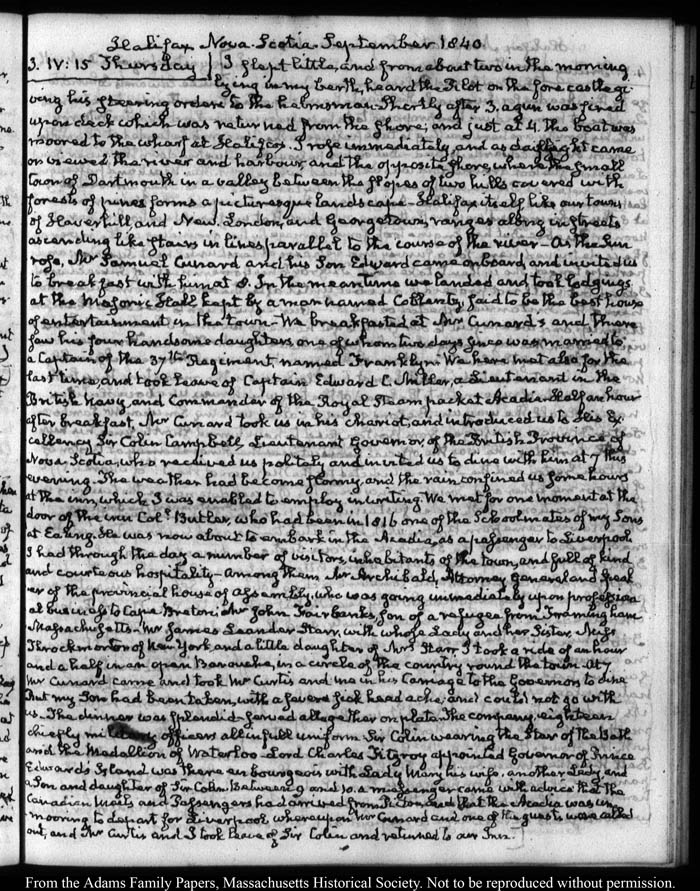 Halifax Nova-Scotia. September 1840.
3. IV: 15 Thursday I slept little, and from about two in the morning
lying in my berth, heard the Pilot on the fore castle gi-
ving his steering orders to the helmsman. Shortly after 3. a gun was fired
upon deck which was returned from the shore; and just at 4. the boat was
moored to the wharf at Halifax. I rose immediately, and as daylight came
on viewed the river and harbour, and the opposite shore, where the small
town of Dartmouth in a valley between the slopes of two hills covered with
forests of pines forms a picturesque landscape—Halifax itself like our towns
of Haverhill and New-London, and Georgetown, ranges along in streets
ascending like stairs in lines parallel to the course of the river—As the Sun
rose, Mr Samuel Cunard and his Son Edward came on board, and invited us
to breakfast with him at 8. In the meantime we landed and took lodgings
at the Masonic Hall kept by a man named said to be the best house
of entertainment in the town—We breakfasted at Mr Cunard's and there
saw his four handsome daughters, one of whom two days since was married to
a Captain of the 37th Regiment, named Franklyn. We here met also for the
last time, and took leave of Captain Edward C. Miller, a Lieutenant in the
British Navy, and Commander of the Royal Steam packet Acadia. Half an hour
after breakfast, Mr Cunard took us in his chariot, and introduced us to His Ex-
cellency Sir Colin Campbell, Lieutenant Governor, of the British Province of
Nova-Scotia, who received us politely and invited us to dine with him at 7 this
evening. The weather had become stormy, and the rain confined us some hours
at the inn, which I was enabled to employ in writing. We met for one moment at the
door of the inn Coll Butler, who had been in 1816 one of the Schoolmates of my Sons
at Ealing. He was now about to embark in the Acadia, as a passenger to Liverpool.
I had through the day a number of visitors, inhabitants of the town, and full of kind
and courteous hospitality—Among them Mr Archibald, Attorney General and Speak-
er of the provincial house of Assembly, who was going immediately upon profession-
al business to Cape Breton; Mr John Fairbanks, son of a refugee from Framingham
Massachusetts—Mr James Leander Starr, with whose Lady and her Sister, Miss
Throckmorton of New York, and a little daughter of Mrs Starr, I took a ride of an hour
and a half in an open Barouche, in a circle of the country round the town. At 7
Mr Cunard came and took Mr Curtis and me in his carriage to the Governor to dine
But my Son had been taken, with a severe sick head ache, and could not go with
us. The dinner was splendid—served altogether on plate. The company, eighteen
chiefly military officers all in full uniform Sir Colin wearing the Star of the Bath
and the Medallion of Waterloo—Lord Charles Fitzroy appointed Governor of Prince
Edward's Island was there en bourgeois with Lady Mary his wife, another Lady and
a Son and daughter of Sir Colin. Between 9 and 10. a messenger came with advice that the
Canadian Mails and Passengers had arrived from and that the Acadia was un-
mooring to depart for Liverpool, whereupon Mr Cunard and one of the guests were called
out, and Mr Curtis and I took leave of Sir Colin and returned to our Inn.
From the Adams Family Papers, Massachusetts Historical Society. Not to be reproduced without permission.